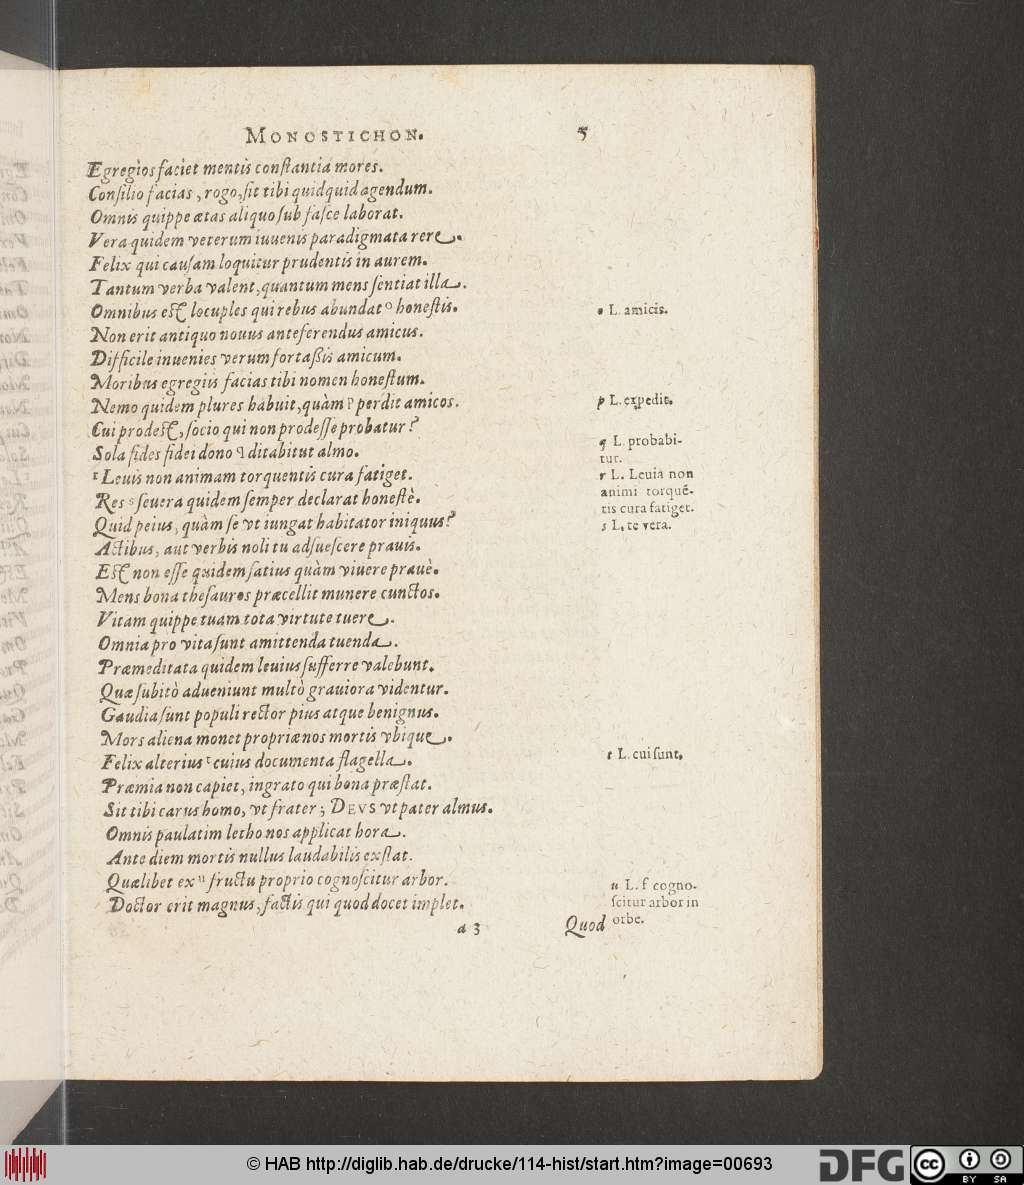 MONOSTICHON. 5
Egregios faciet mentis constantia mores.
Consilio facias, rogo, sit tibi quidquid agendum.
Omnis quippe ætas aliquo sub fasce laborat.
Vera quidem veterum iuuenis paradigmata rere.
Felix qui causam loquitur prudentis in aurem.
Tantum verba valent, quantum mens sentiat illa.
Omnibus est locuples qui rebus abundat ° honestis.
o L. amicis.
Non erit antiquo nouus anteferendus amicus.
Difficile inuenies verum fortaßis amicum.
Moribus egregiis facias tibi nomen honestum.
Nemo quidem plures habuit, quàm p perdit amicos.
p L. expedit.
Cui prodest, socio qui non prodesse probatur?
Sola fides fidei dono q ditabitut almo.
q L. probabi-
tur.
r Leuis non animam torquentis cura fatiget.
r L. Leuia non
animi torquē-
tis cura fatiget.
Res s seuera quidem semper declarat honestè.
Quid peius, quàm se vt iungat habitator iniquus?
s L. te vera.
Actibus, aut verbis noli tu adsuescere prauis.
Est non esse quidem satius quàm viuere prauè.
Mens bona thesauros præcellit munere cunctos.
Vitam quippe tuam tota virtute tuere.
Omnia pro vita sunt amittenda tuenda.
Præmeditata quidem leuius sufferre valebunt.
Quæ subitò adueniunt multò grauiora videntur.
Gaudia sunt populi rector pius atque benignus.
Mors aliena monet propriæ nos mortis vbique.
Felix alterius t cuius documenta flagella.
t L. cui sunt.
Præmia non capiet, ingrato qui bona præstat.
Sit tibi carus homo, vt frater; DEVS vt pater almus.
Omnis paulatim letho nos applicat hora.
Ante diem mortis nullus laudabilis exstat.
Quælibet ex u fructu proprio cognoscitur arbor.
u L. f cogno-
scitur arbor in
orbe.
Doctor erit magnus, factis qui quod docet implet.
a 3 Quod
© HAB http://diglib.hab.de/drucke/114-hist/start.htm?image=00693
DFG
cc
BY SA